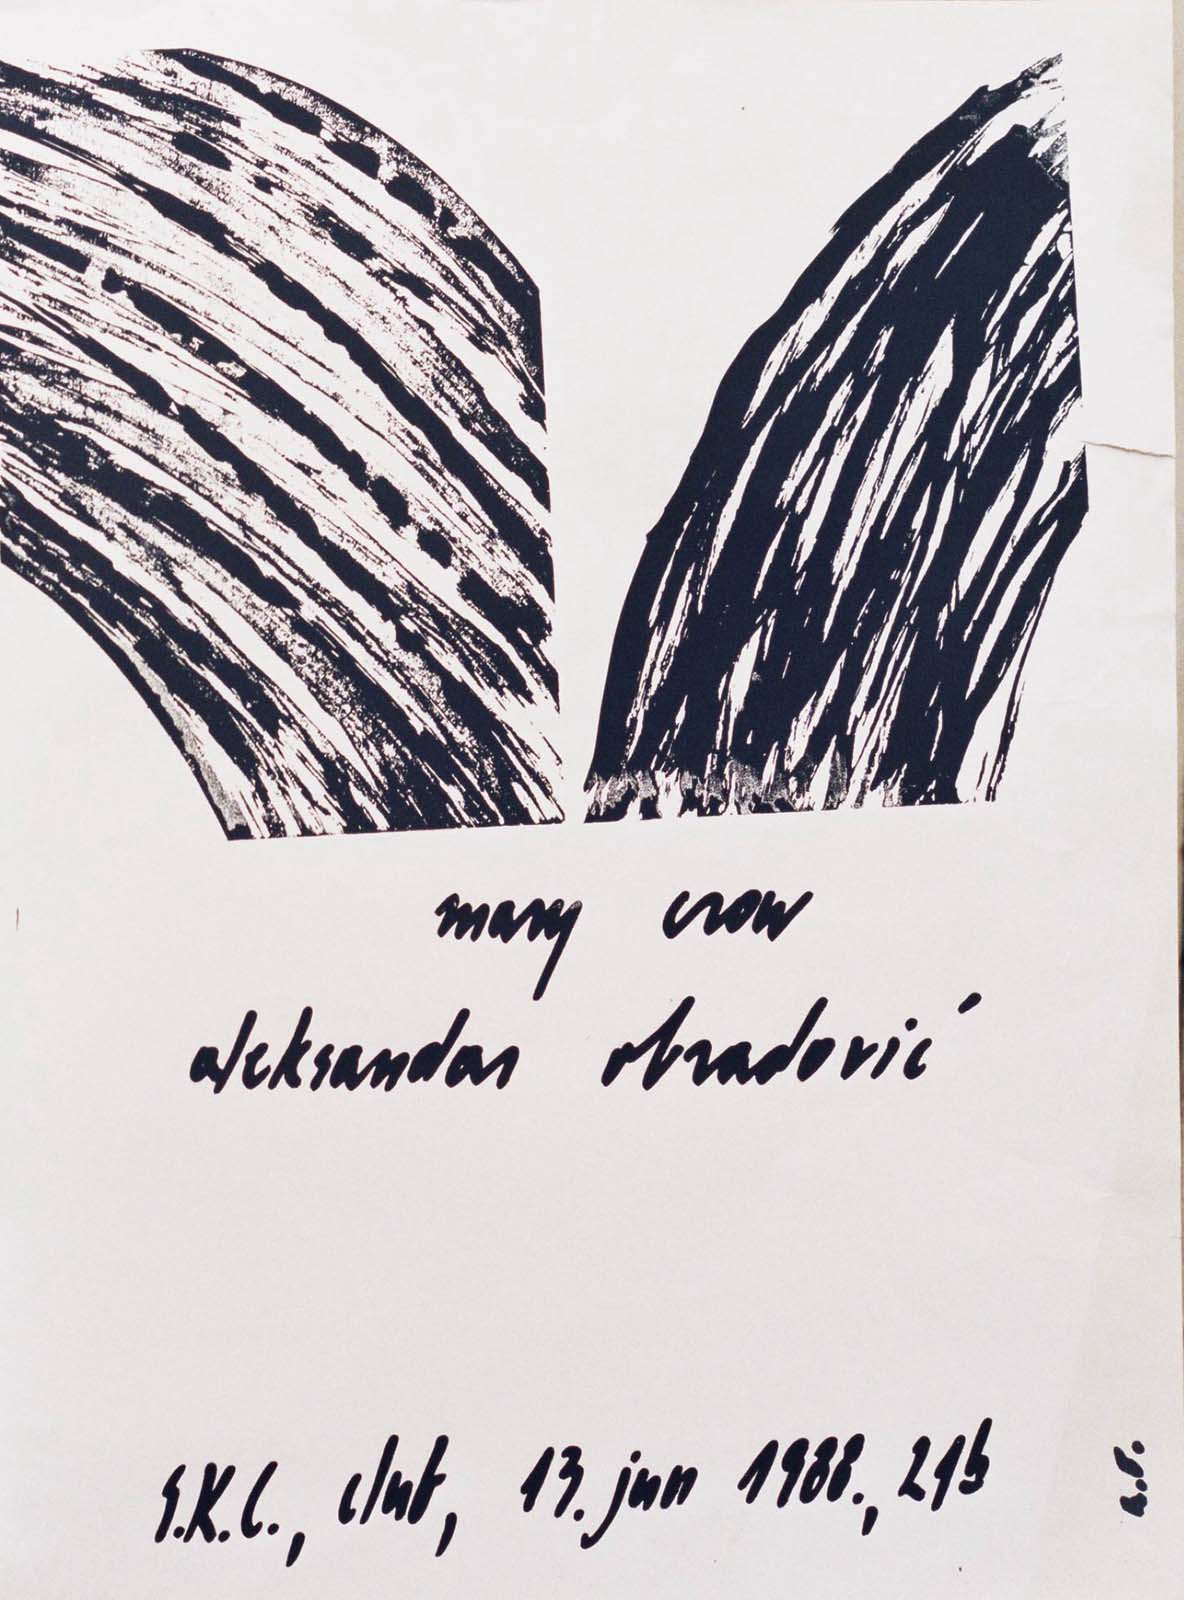 mary crow
aleksandar obradović
S.K.C., club, 13. jun 1988., 21h